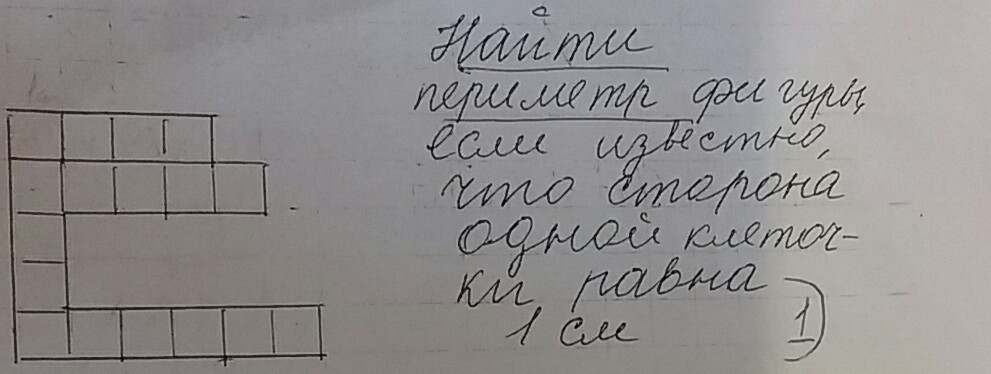 Найти
периметр фигуры,
если известно,
что сторона
одной клеточ-
ки равна
1 см
1)